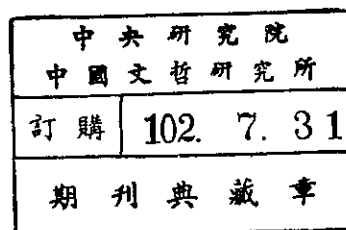 中央研究院
中國文哲研究所
訂購 102. 7. 31
期刊典藏章